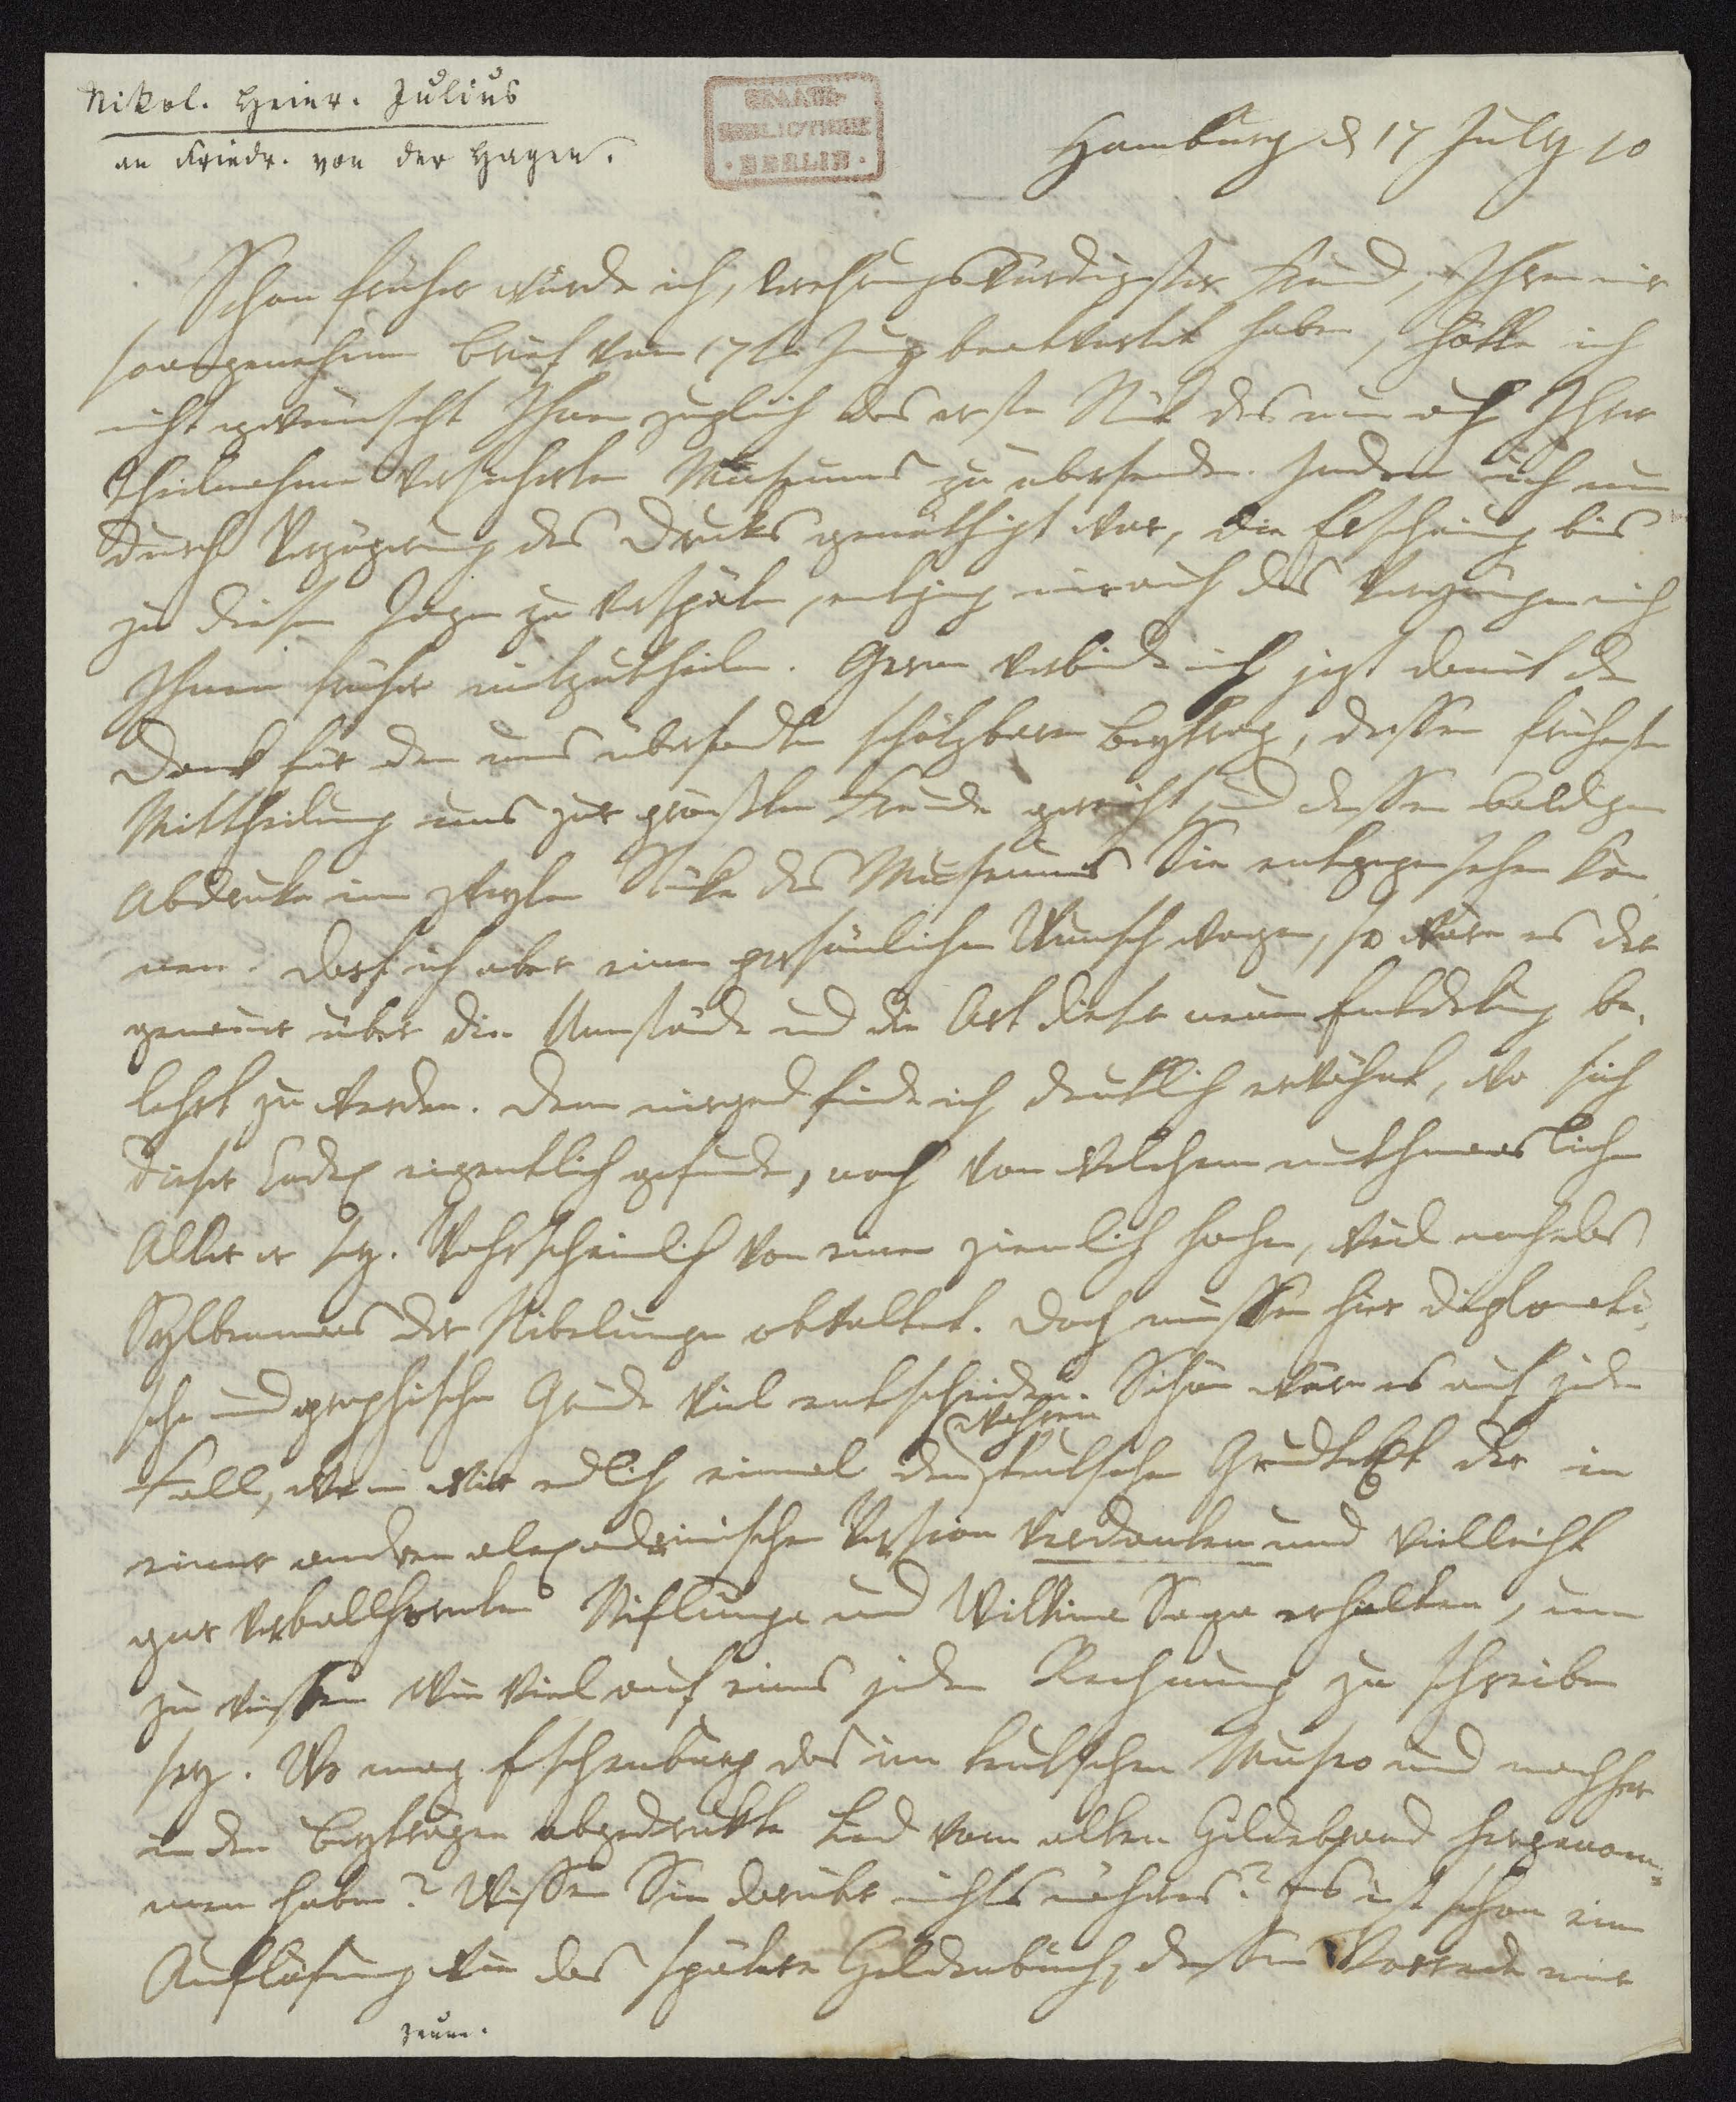 Nikol. Heinr. Julius
an Friedr. von der Hagen.
STAATS-
BIBLIOTHEK
· BERLIN ·
Hamburg d 17 July 10
Schon früher würde ich, verehrungswürdigster Freund, Ihren mir
so angenehmen Brief vom 17ten Juny beantwortet haben, hätte ich
nicht gewünscht Ihnen zugleich das erste Stük des nun auch Ihrer
Theilnahme versicherten Museums zu übersenden. Indem ich nun
durch Verzögerung des Druks genöthigt war, die Erscheinung bis
zu diesen Tagen zu verspäten, entging mir auch das Vergnügen mich
Ihnen früher mitzutheilen. Gern verbinde ich jezt damit den
Dank für den uns übersandten schätzbaren Beytrag, dessen früheste
Mittheilung uns zur grössten Freude gereicht und dessen baldigen
Abdruke im zweyten Stüke des Museums Sie entgegensehen kön
nen. Darf ich aber einen persönlichen Wunsch wagen, so wäre es der
genauer über die Umstände und die Art dieser neuen Entdekung be¬
lehrt zu werden. Denn nirgend finde ich deutlich erwähnt, wo sich
dieser Codex eigentlich gefunden, noch von welchem muthmaslichen
Alter er sey. Wahrscheinlich von einem ziemlich hohen, weil noch das
Sylbenmaas der Nibelungen obwaltet. Doch müssen hier diplomati¬
sche und graphische Gründe viel entscheiden. Schön wäre es auf jeden
Fall, wenn wir endlich einmal den wahren teutschen Grundtext der in
einer andren alexandrinischen Version verdankten und vielleicht
gar verballhornten Niflunga und Wilkina Saga erhielten, um
zu wissen wie viel auf eines jeden Rechnung zu schreiben
sey. Wo mag Eschenburg das im teutschen Museo und nachher
in den Beyträgen abgedrukte Lied vom alten Hildebrand hergenom=
men haben? Wissen Sie darüber nichts näheres? Es ist schon eine
Auflösung wie das spätere Heldenbuch, dessen Vorrede mir
zum.